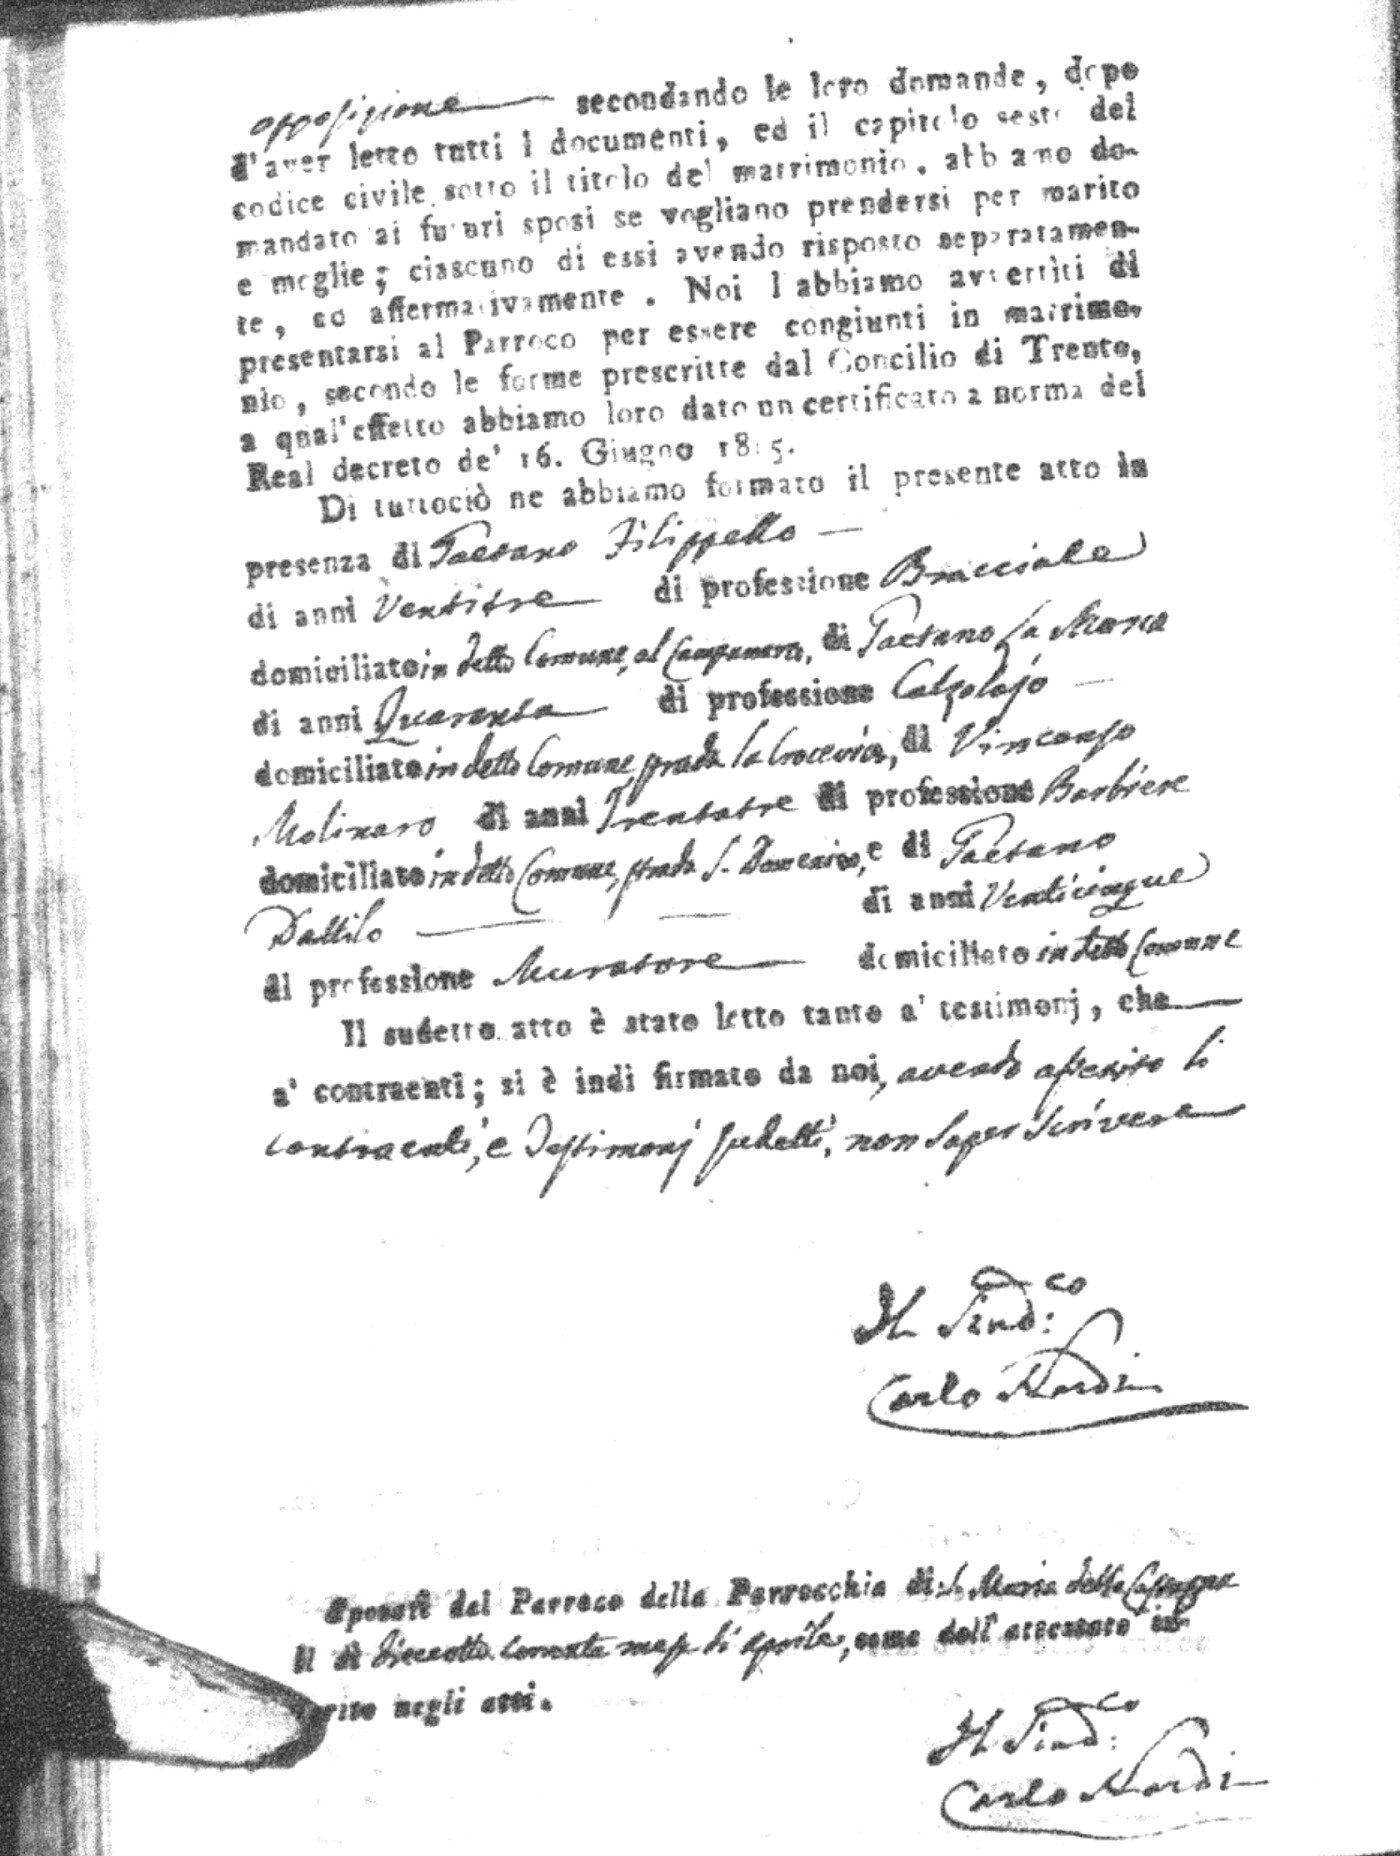 opposizione secondando le loro domande, dopo
d'aver letto tutti i documenti, ed il capitolo sesto del
codice civile sotto il titolo del matrimonio, abb amo do-
mandato ai futuri sposi se vogliano prendersi per marito
e moglie; ciascuno di essi avendo risposto separatamen-
te, ed affermativamente. Noi l abbiamo avvertiti di
presentarsi al Parroco per essere congiunti in matrimo-
nio, secondo le forme prescritte dal Concilio di Trento,
a qual'effetto abbiamo loro dato un certificato a norma del
Real decreto de' 16. Giugno 1815.
Di tuttociò ne abbiamo formato il presente atto in
presenza di Gaetano Filippello
di anni Ventitre di professione Bracciale
domiciliato in detto Comune, al di Gaetano La Marca
di anni Quaranta di professione Calzolajo
domiciliato in detto Comune, strada la Crocevia, di Vincenzo
Molinaro di anni Trentatre di professione Barbiere
domiciliato in detto Comune, strada S. Domenico, e di Gaetano
Dattilo di anni Venticinque
di professione Muratore domiciliato in detto Comune
Il sudetto atto è stato letto tanto a' testimonj, che
a' contraenti; si è indi firmato da noi, avendo asserito li
contraenti, e Testimonj sudetti, non saper scrivere
Il Sind:co
Carlo Nardi
Sposati dal Parroco della Parrocchia di S. Maria della
Il dì Dieceotto corrente mese di aprile, come dall' attestato in-
serito negli atti.
Il Sind:co
Carlo Nardi